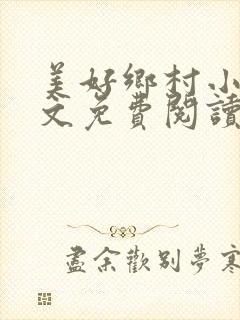 美好鄉村小
文免費閱讀
盡余歡別夢寒